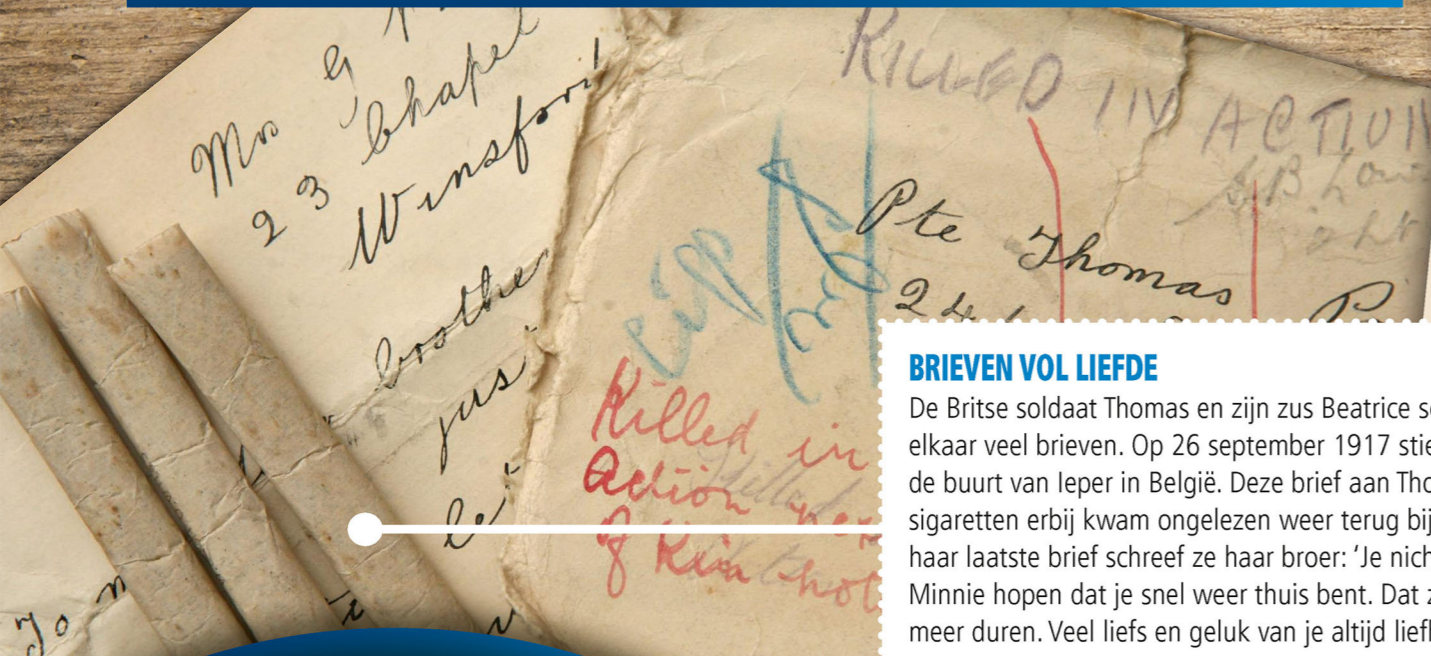 Mrs G
23 Chapel
Winsford
brothe
jus
let
To m
KILLED IN ACTION
Pte Thomas P
24
Killed in
Action
of Kin not
BRIEVEN VOL LIEFDE
De Britse soldaat Thomas en zijn zus Beatrice s
elkaar veel brieven. Op 26 september 1917 stie
de buurt van Ieper in België. Deze brief aan Tho
sigaretten erbij kwam ongelezen weer terug bij
haar laatste brief schreef ze haar broer: ‘Je nich
Minnie hopen dat je snel weer thuis bent. Dat z
meer duren. Veel liefs en geluk van je altijd lief